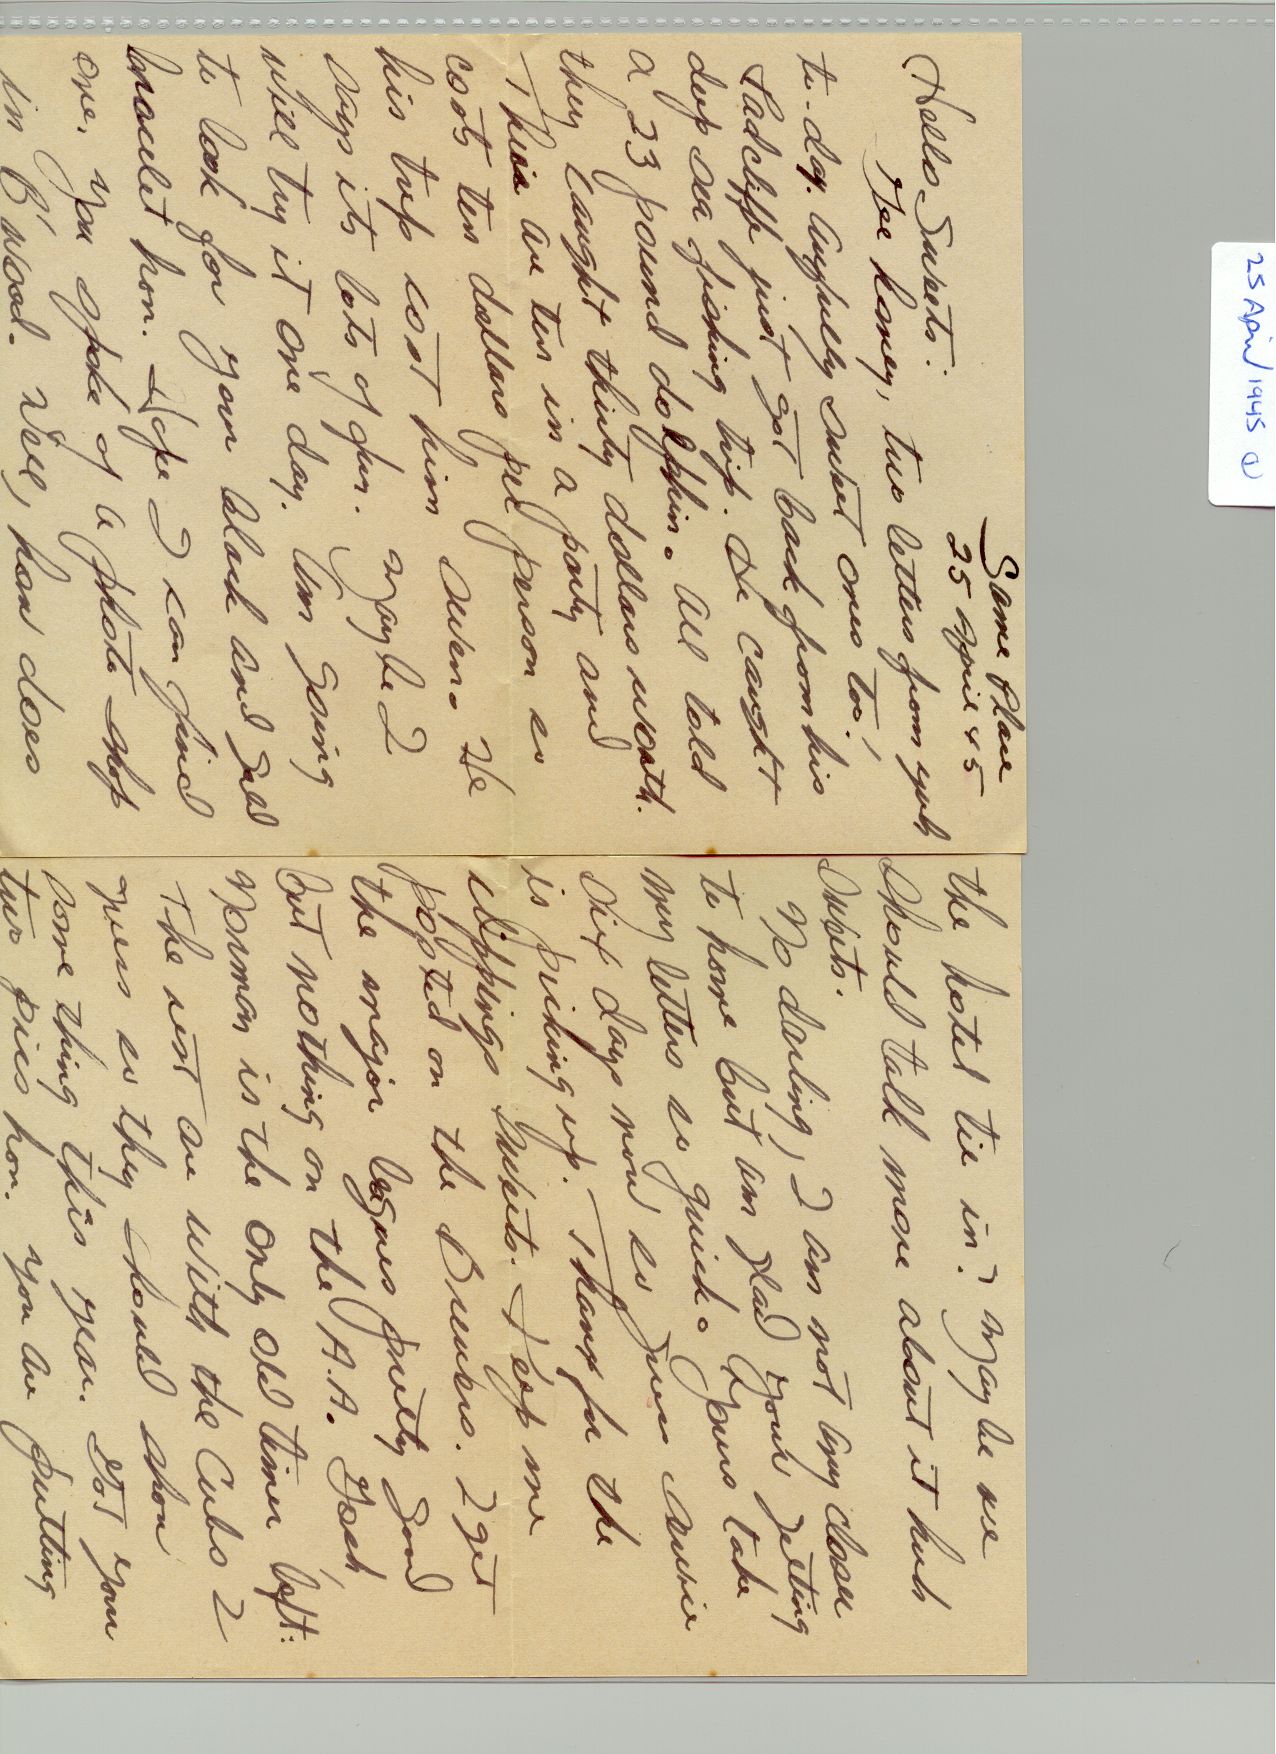 25 April 1945 ①
Same Place
25 April 45
Hello Sweets:
Gee honey, two letters from yuh
to-day. Awfully sweet ones too!
Radcliff just got back from his
deep sea fishing trip. He caught
a 23 pound dolphin. All told
they caught thirty dollars worth.
There are ten in a party and
costs ten dollars per person so
his trip cost him seven. He
says its lots of fun. Maybe I
will try it one day. Am going
to look for your black and red
bracelet hon. Hope I can find
one. You spoke of a photo shop
in B'wood. Well, how does
the hotel tie in? Maybe we
should talk more about it huh
Sweets.
No darling, I am not any closer
to home but am glad your getting
my letters so quick. Yours take
six days now so guess service
is picking up. Thanx for the
clippings Sweets. Keep me
posted on the Brewers. I get
the major leagues pretty good
but nothing on the A.A. Gosh,
Norman is the only old timer left:
The rest are with the Cubs I
guess so they should show
some thing this year. Got your
two pics hon. You are putting